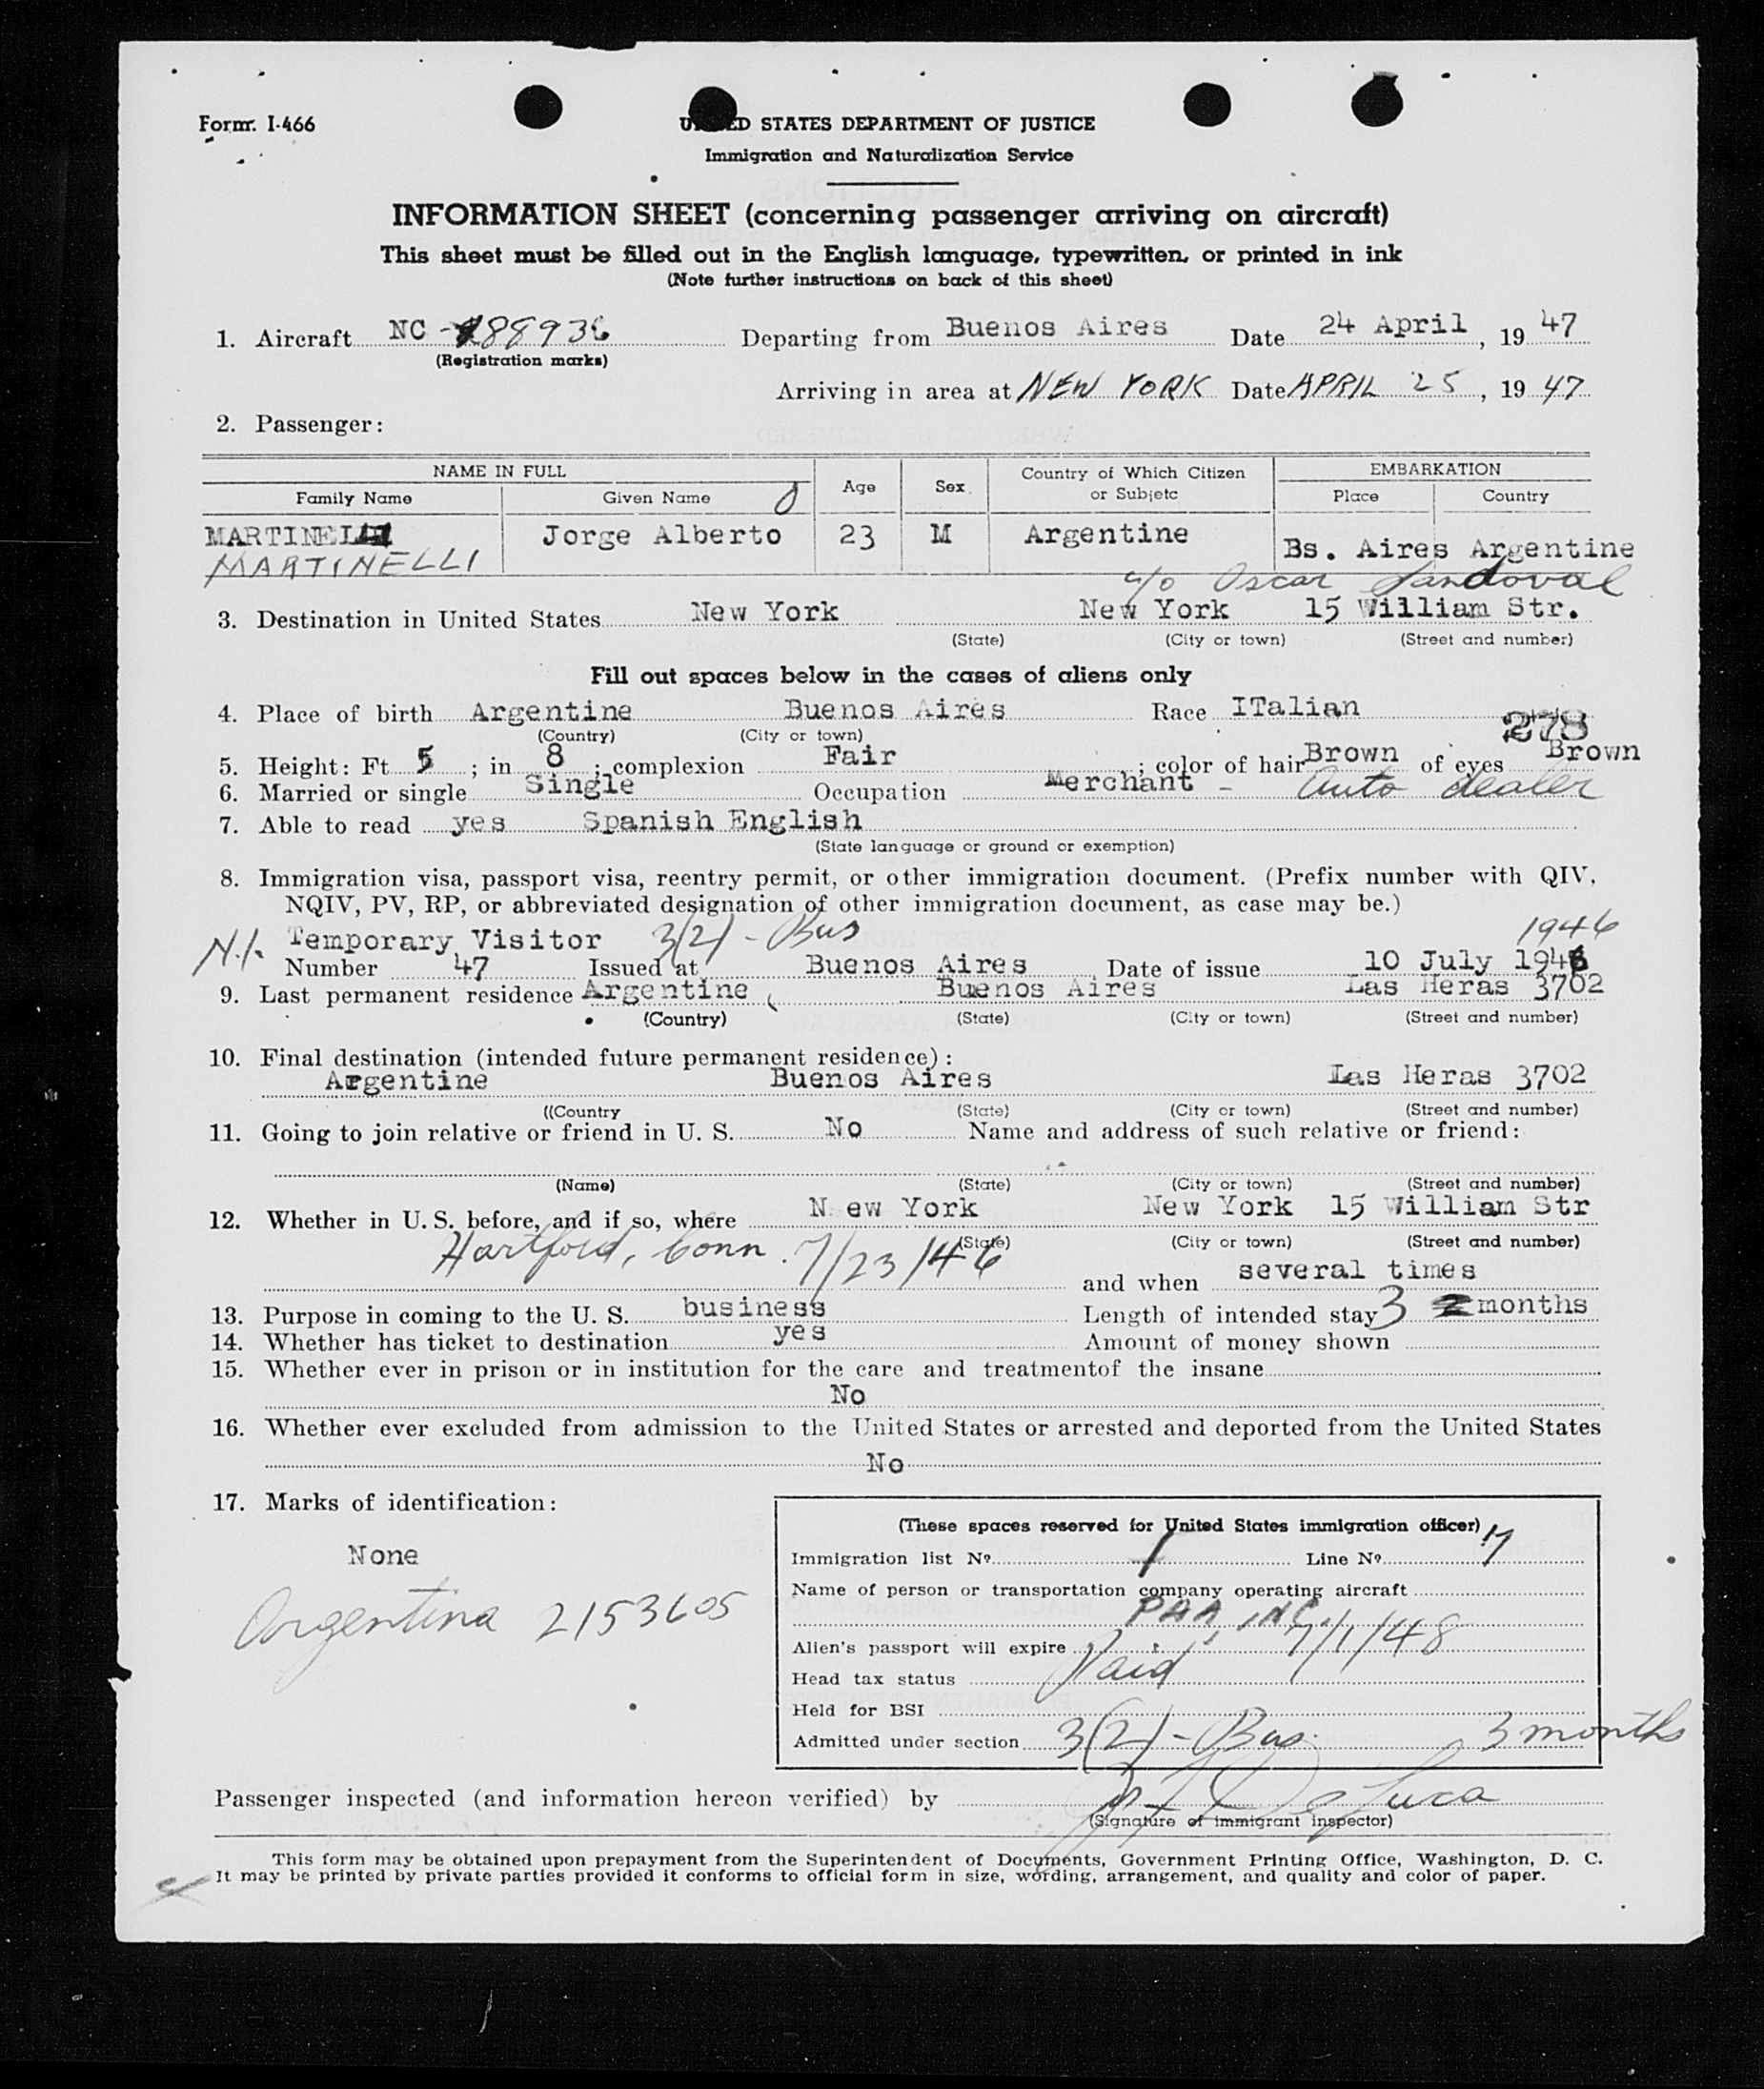 Form. I-466
UNITED STATES DEPARTMENT OF JUSTICE
Immigration and Naturalization Service
INFORMATION SHEET (concerning passenger arriving on aircraft)
This sheet must be filled out in the English language, typewritten, or printed in ink
(Note further instructions on back of this sheet)
1. Aircraft NC - 88936 Departing from Buenos Aires Date 24 April, 19 47
(Registration marks)
Arriving in area at NEW YORK Date APRIL 25, 19 47
2. Passenger:
NAME IN FULL Age Sex Country of Which Citizen or Subjetc EMBARKATION
Family Name Given Name Place Country
MARTINELLI Jorge Alberto 23 M Argentine Bs. Aires Argentine
MARTINELLI
c/o Oscar Sandoval
3. Destination in United States New York New York 15 William Str.
(State) (City or town) (Street and number)
Fill out spaces below in the cases of aliens only
4. Place of birth Argentine Buenos Aires Race ITalian
(Country) (City or town) 278
5. Height: Ft 5 ; in 8 ; complexion Fair ; color of hair Brown of eyes Brown
6. Married or single Single Occupation Merchant - Auto dealer
7. Able to read yes Spanish English
(State language or ground or exemption)
8. Immigration visa, passport visa, reentry permit, or other immigration document. (Prefix number with QIV,
NQIV, PV, RP, or abbreviated designation of other immigration document, as case may be.)
N.I. Temporary Visitor 3(2) - Bus 1946
Number 47 Issued at Buenos Aires Date of issue 10 July 1946
9. Last permanent residence Argentine Buenos Aires Las Heras 3702
(Country) (State) (City or town) (Street and number)
10. Final destination (intended future permanent residence):
Argentine Buenos Aires Las Heras 3702
((Country (State) (City or town) (Street and number)
11. Going to join relative or friend in U. S. No Name and address of such relative or friend:
(Name) (State) (City or town) (Street and number)
12. Whether in U. S. before, and if so, where N ew York New York 15 William Str
(State) (City or town) (Street and number)
Hartford, Conn. 7/23/46 and when several times
13. Purpose in coming to the U. S. business Length of intended stay 3 2 months
14. Whether has ticket to destination yes Amount of money shown
15. Whether ever in prison or in institution for the care and treatmentof the insane
No
16. Whether ever excluded from admission to the United States or arrested and deported from the United States
No
17. Marks of identification:
None
Argentina 2153605
(These spaces reserved for United States immigration officer)
Immigration list Nº 1 Line Nº 17
Name of person or transportation company operating aircraft
PAA, INC.
Alien's passport will expire 7/1/48
Head tax status Paid
Held for BSI
Admitted under section 3(2) - Bus. 3 months
Passenger inspected (and information hereon verified) by De Luca
(Signature of immigrant inspector)
This form may be obtained upon prepayment from the Superintendent of Documents, Government Printing Office, Washington, D. C.
It may be printed by private parties provided it conforms to official form in size, wording, arrangement, and quality and color of paper.